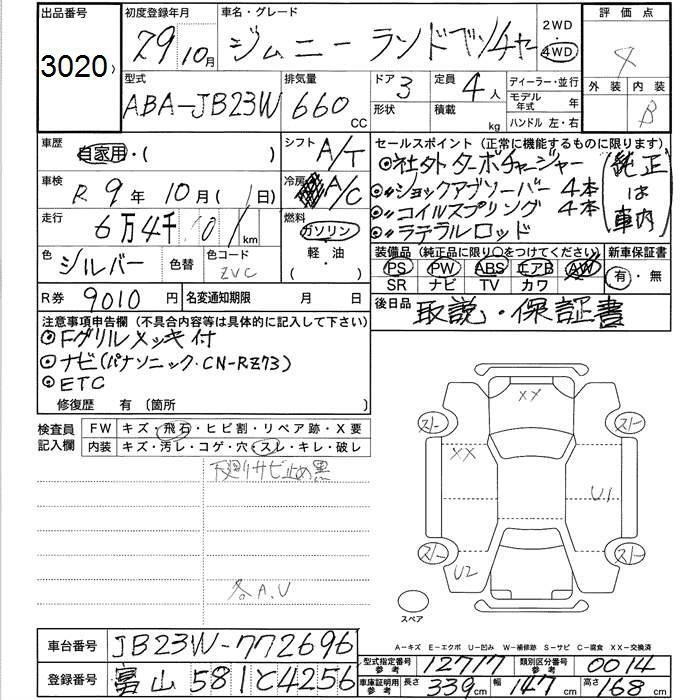 出品番号 初度登録年月 車名・グレード 2WD 評価点
3020) 29 10月 ジムニー ランドベンチャー 4WD 4
型式 排気量 ドア 3 定員 4人 ディーラー・並行 外装 内装
ABA-JB23W 660 CC 形状 積載 kg モデル年式 年 B
ハンドル 左・右
車歴 自家用・( ) シフト A/T セールスポイント (正常に機能するものに限ります)
車検 R 9年 10月( 1日) 冷房 A/C
走行 6万4千101km 燃料 ガソリン 軽油 ・( )
◎社外ターボチャージャー
◎〃ショックアブソーバー 4本
◎〃コイルスプリング 4本
◎〃ラテラルロッド
(純正は車内)
色 シルバー 色替 色コード ZVC
装備品 (純正品に限り○をつけてください) 新車保証書
PS PW ABS エアB AW 有・無
SR ナビ TV カワ
R券 9010円 名変通知期限 月 日
後日品 取説・保証書
注意事項申告欄 (不具合内容等は具体的に記入して下さい)
◎Fグリルメッキ付
◎ナビ(パナソニック・CN-RZ73)
◎ETC
修復歴 有 (箇所 )
検査員記入欄 FW キズ・飛石・ヒビ割・リペア跡・X要
内装 キズ・汚レ・コゲ・穴・スレ・キレ・破レ
下廻りサビ止め黒
各A.U
XX
スレー スレー
XX
U1
スレー スレー
U2
スペア
A-キズ E-エクボ U-凹み W-補修跡 S-サビ C-腐食 XX-交換済
車台番号 JB23W-772696
型式指定番号 参考 12717 類別区分番号 参考 0014
登録番号 富山 581 と 4256
車庫証明用 参考 長さ 339cm 幅 147cm 高さ 168cm